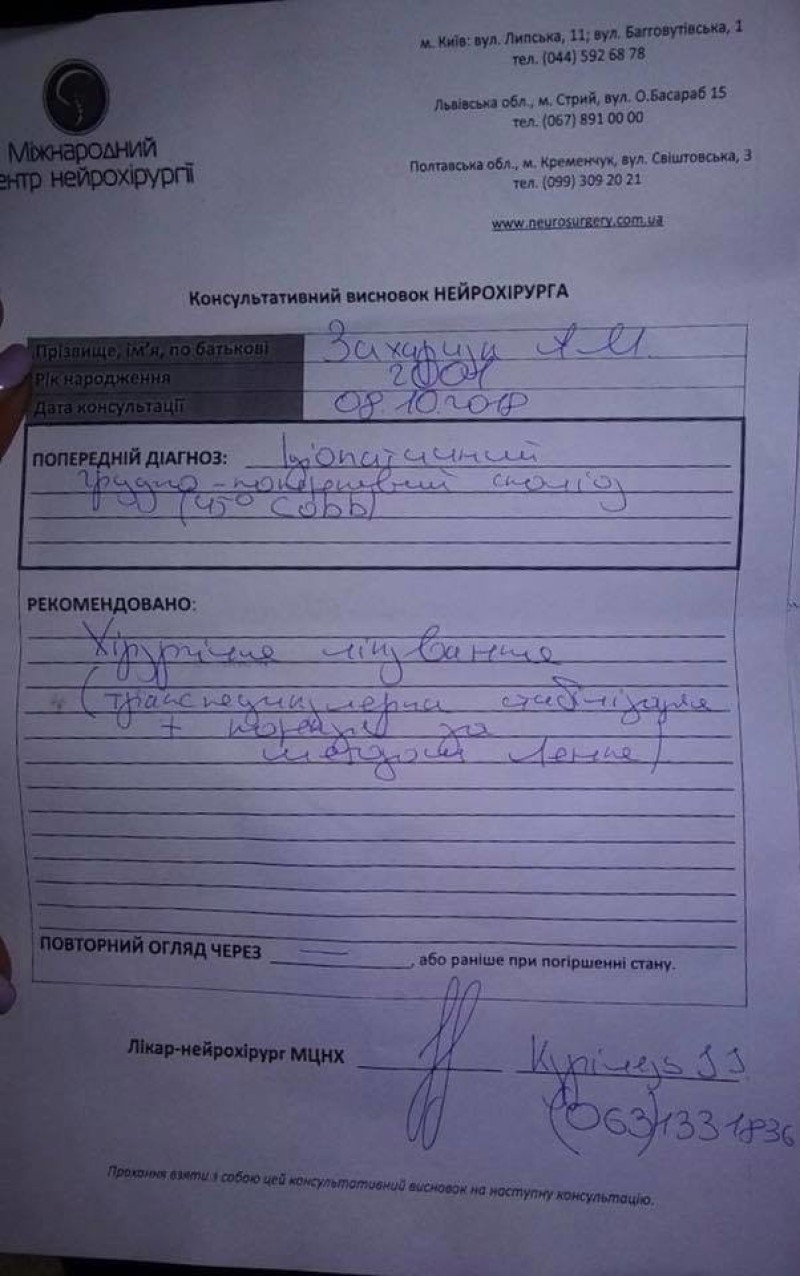 м. Київ: вул. Липська, 11; вул. Багговутівська, 1
тел. (044) 592 68 78
Львівська обл., м. Стрий, вул. О.Басараб 15
тел. (067) 891 00 00
Полтавська обл., м. Кременчук, вул. Свіштовська, 3
тел. (099) 309 20 21
www.neurosurgery.com.ua
Міжнародний
ентр нейрохірургії
Консультативний висновок НЕЙРОХІРУРГА
Прізвище, ім'я, по батькові А.М.
Рік народження 2001
Дата консультації 08.10.2018
ПОПЕРЕДНІЙ ДІАГНОЗ: Ідіопатичний
грудо-поперековий сколіоз
(45° Cobb)
РЕКОМЕНДОВАНО:
Хірургічне лікування
(транспедикулярна стабілізація
+ корекція за
методом Ленке)
ПОВТОРНИЙ ОГЛЯД ЧЕРЕЗ — , або раніше при погіршенні стану.
Лікар-нейрохірург МЦНХ Курілець І.І.
(063)1331836
Прохання взяти з собою цей консультативний висновок на наступну консультацію.